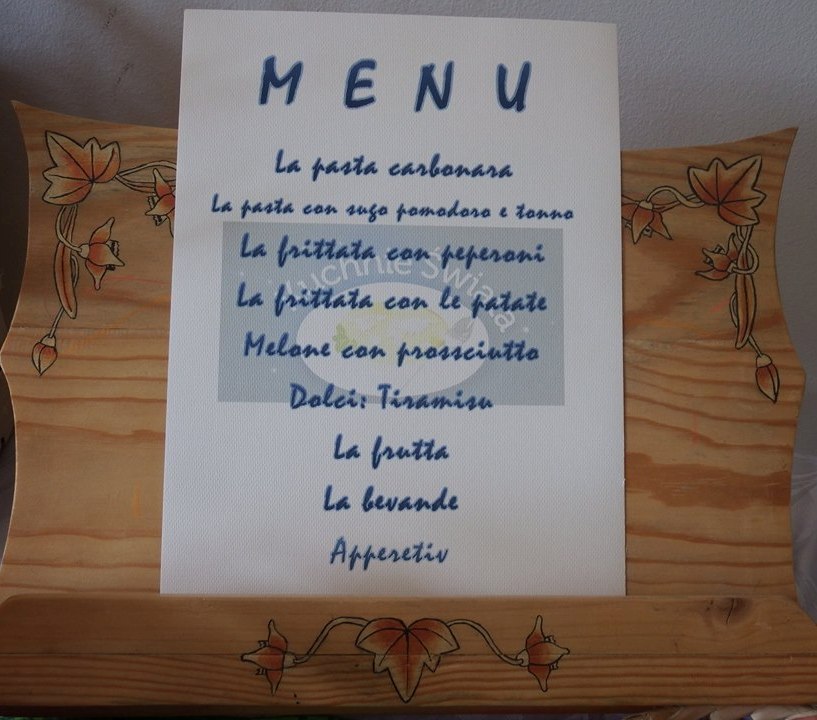 MENU
La pasta carbonara
La pasta con sugo pomodoro e tonno
La frittata con peperoni
Kuchnie Świata
La frittata con le patate
Melone con prossciutto
Dolci: Tiramisu
La frutta
La bevande
Apperetiv